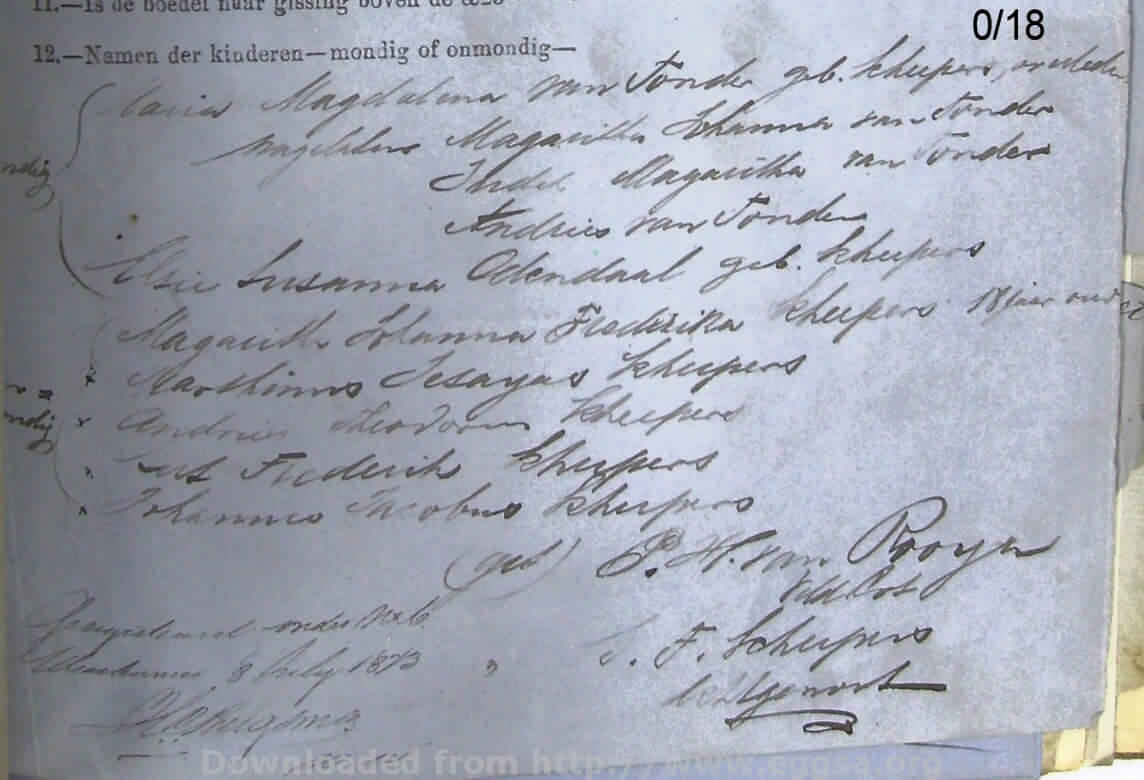 0/18
11.—Is de boedel naar gissing boven de
12.—Namen der kinderen—mondig of onmondig—
Maria Magdalena van Tonder geb. Scheepers, overleden
nagelaten Magaritha Johanna van Tonder
ndig
Judit Magaritha van Tonder
Andries van Tonder
Elsie Susanna Odendaal geb. Scheepers
Magaritha Johanna Frederika Scheepers 18 jaar oud
x Marthinus Jesayas Scheepers
x Andries Theodorus Scheepers
ndig
x Frederik Scheepers
x Johannes Jacobus Scheepers
(get) P. H. van Rooyen
Veld Cort
Geregistreerd onder No 6
8 July 1873 " F. Scheepers
Downloaded from http://www.eggsa.org